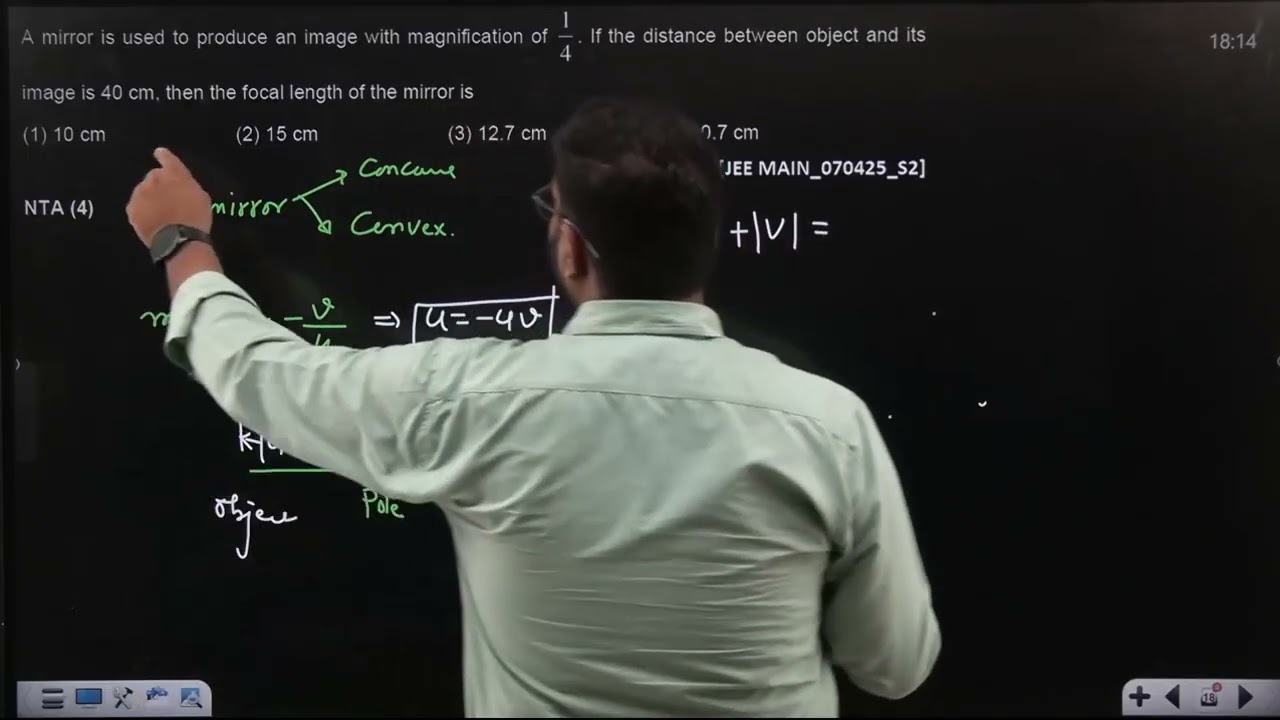 A mirror is used to produce an image with magnification of 1/4. If the distance between object and its
18:14
image is 40 cm, then the focal length of the mirror is
(1) 10 cm (2) 15 cm (3) 12.7 cm 0.7 cm
[JEE MAIN_070425_S2]
Concave
NTA (4) mirror
Convex.
+|V| =
m - v/u ⇒ u = -4v
object Pole
18